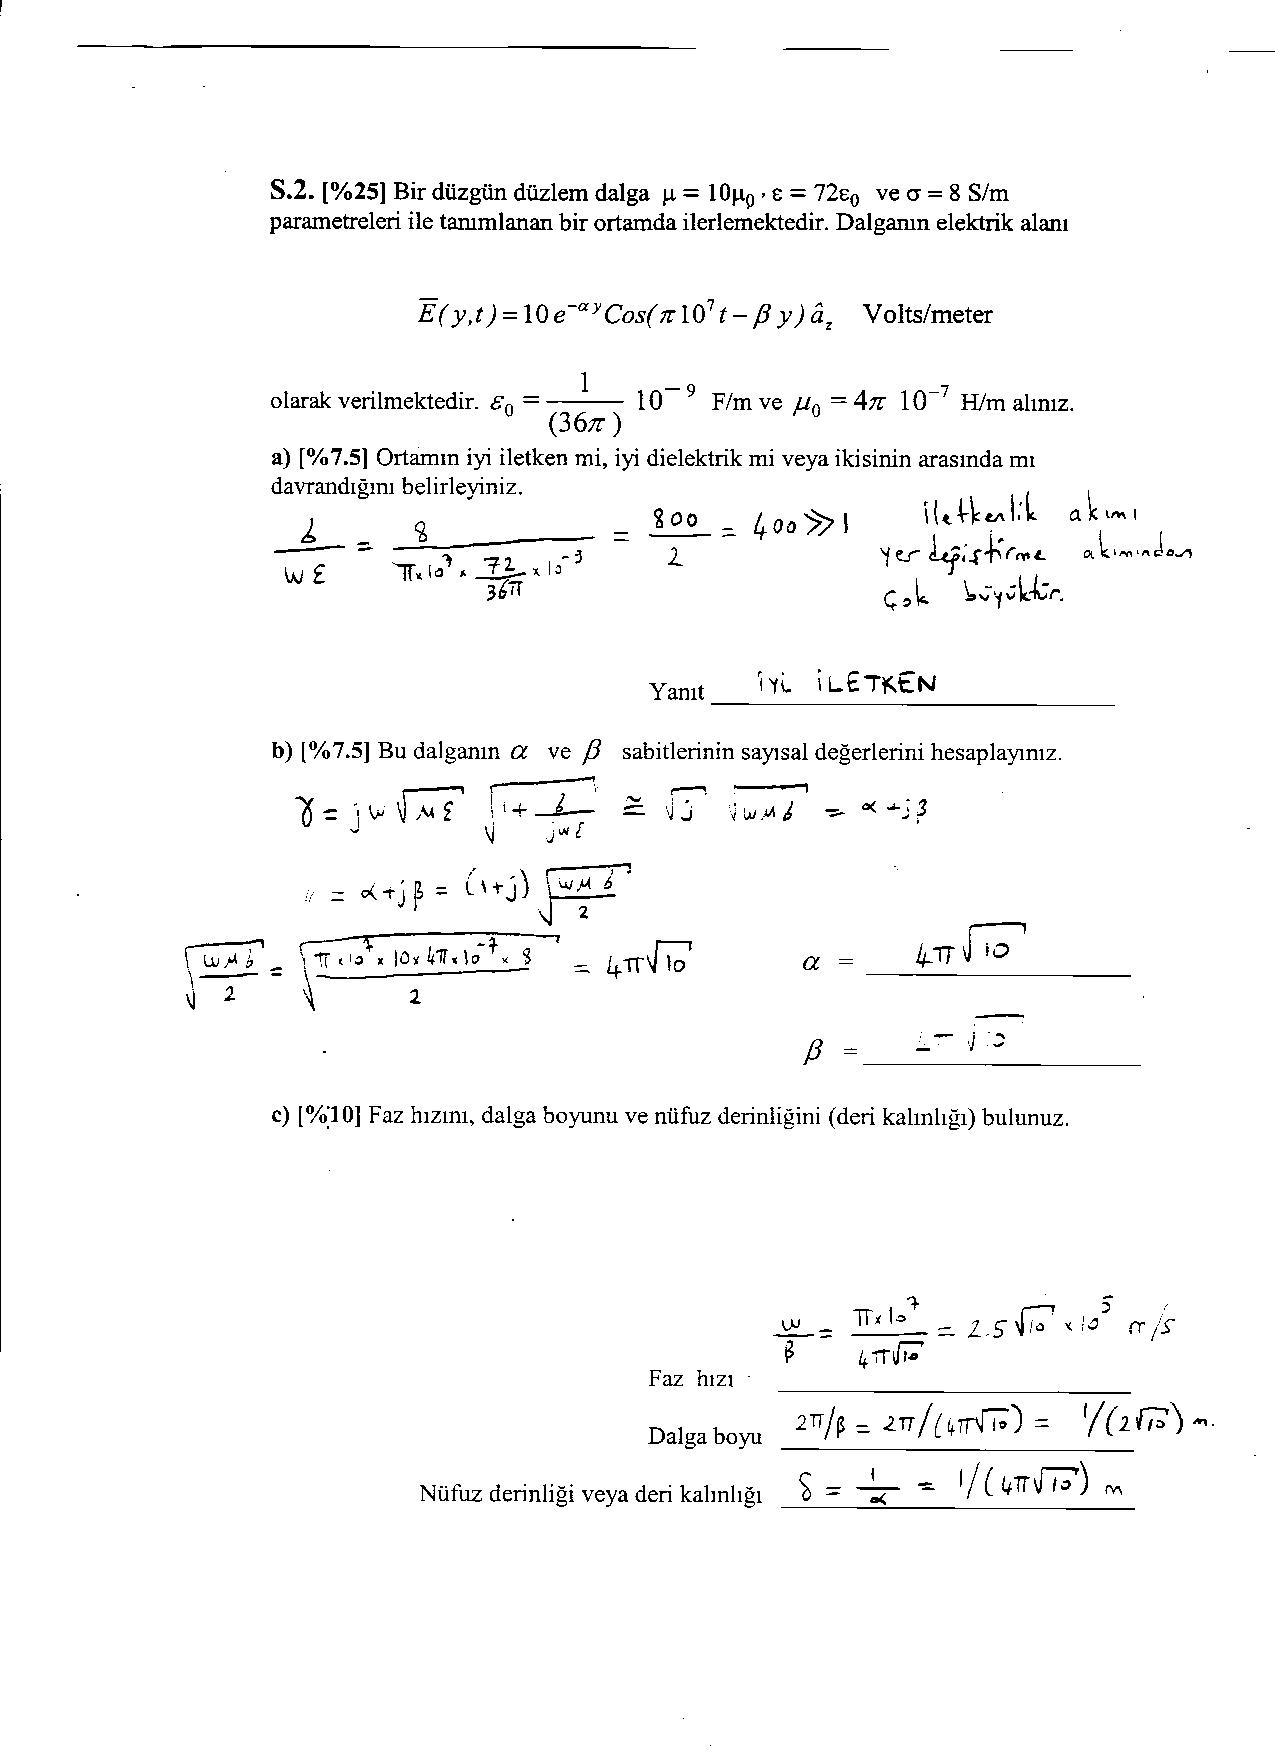 S.2. [%25] Bir düzgün düzlem dalga μ = 10μ₀ , ε = 72ε₀ ve σ = 8 S/m
parametreleri ile tanımlanan bir ortamda ilerlemektedir. Dalganın elektrik alanı
E̅(y,t) = 10 e^{-αy} Cos(π10⁷ t – β y) â_z Volts/meter
olarak verilmektedir. ε₀ = 1/(36π) 10⁻⁹ F/m ve μ₀ = 4π 10⁻⁷ H/m alınız.
a) [%7.5] Ortamın iyi iletken mi, iyi dielektrik mi veya ikisinin arasında mı
davrandığını belirleyiniz.
σ/(ωε) = 8/(π×10⁷ × 72/36π × 10⁻³) = 800/2 = 400 ≫ 1
iletkenlik akımı
yer değiştirme akımından
çok büyüktür.
Yanıt İYİ İLETKEN
b) [%7.5] Bu dalganın α ve β sabitlerinin sayısal değerlerini hesaplayınız.
γ = jω √(με) √(1 + σ/(jωε)) ≅ √j √(ωμσ) = α + jβ
〃 = α + jβ = (1+j) √(ωμσ/2)
√(ωμσ/2) = √(π×10⁷ × 10×4π×10⁻⁷ × 8 / 2) = 4π√10
α = 4π√10
β = 4π√10
c) [%10] Faz hızını, dalga boyunu ve nüfuz derinliğini (deri kalınlığı) bulunuz.
Faz hızı ω/β = π×10⁷/(4π√10) = 2.5√10 × 10⁵ m/s
Dalga boyu 2π/β = 2π/(4π√10) = 1/(2√10) m.
Nüfuz derinliği veya deri kalınlığı δ = 1/α = 1/(4π√10) m